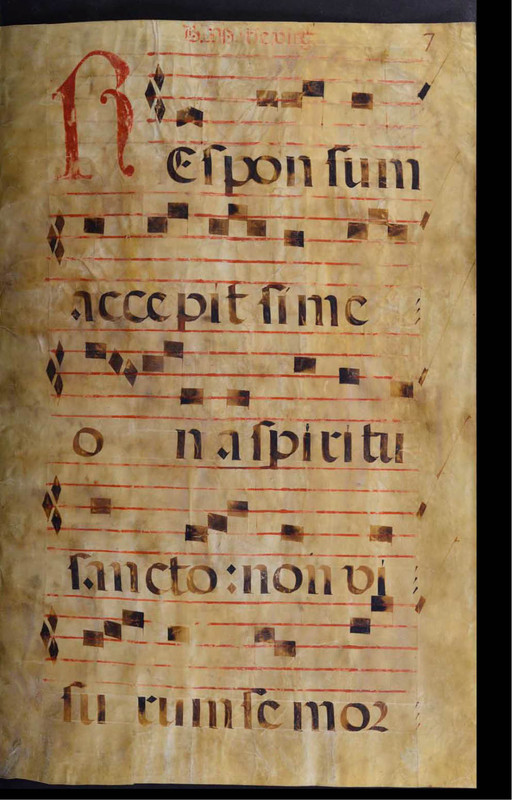 7
REsponsum
accepit sime
o n a spiritu
sancto: non vi
su rum se mor